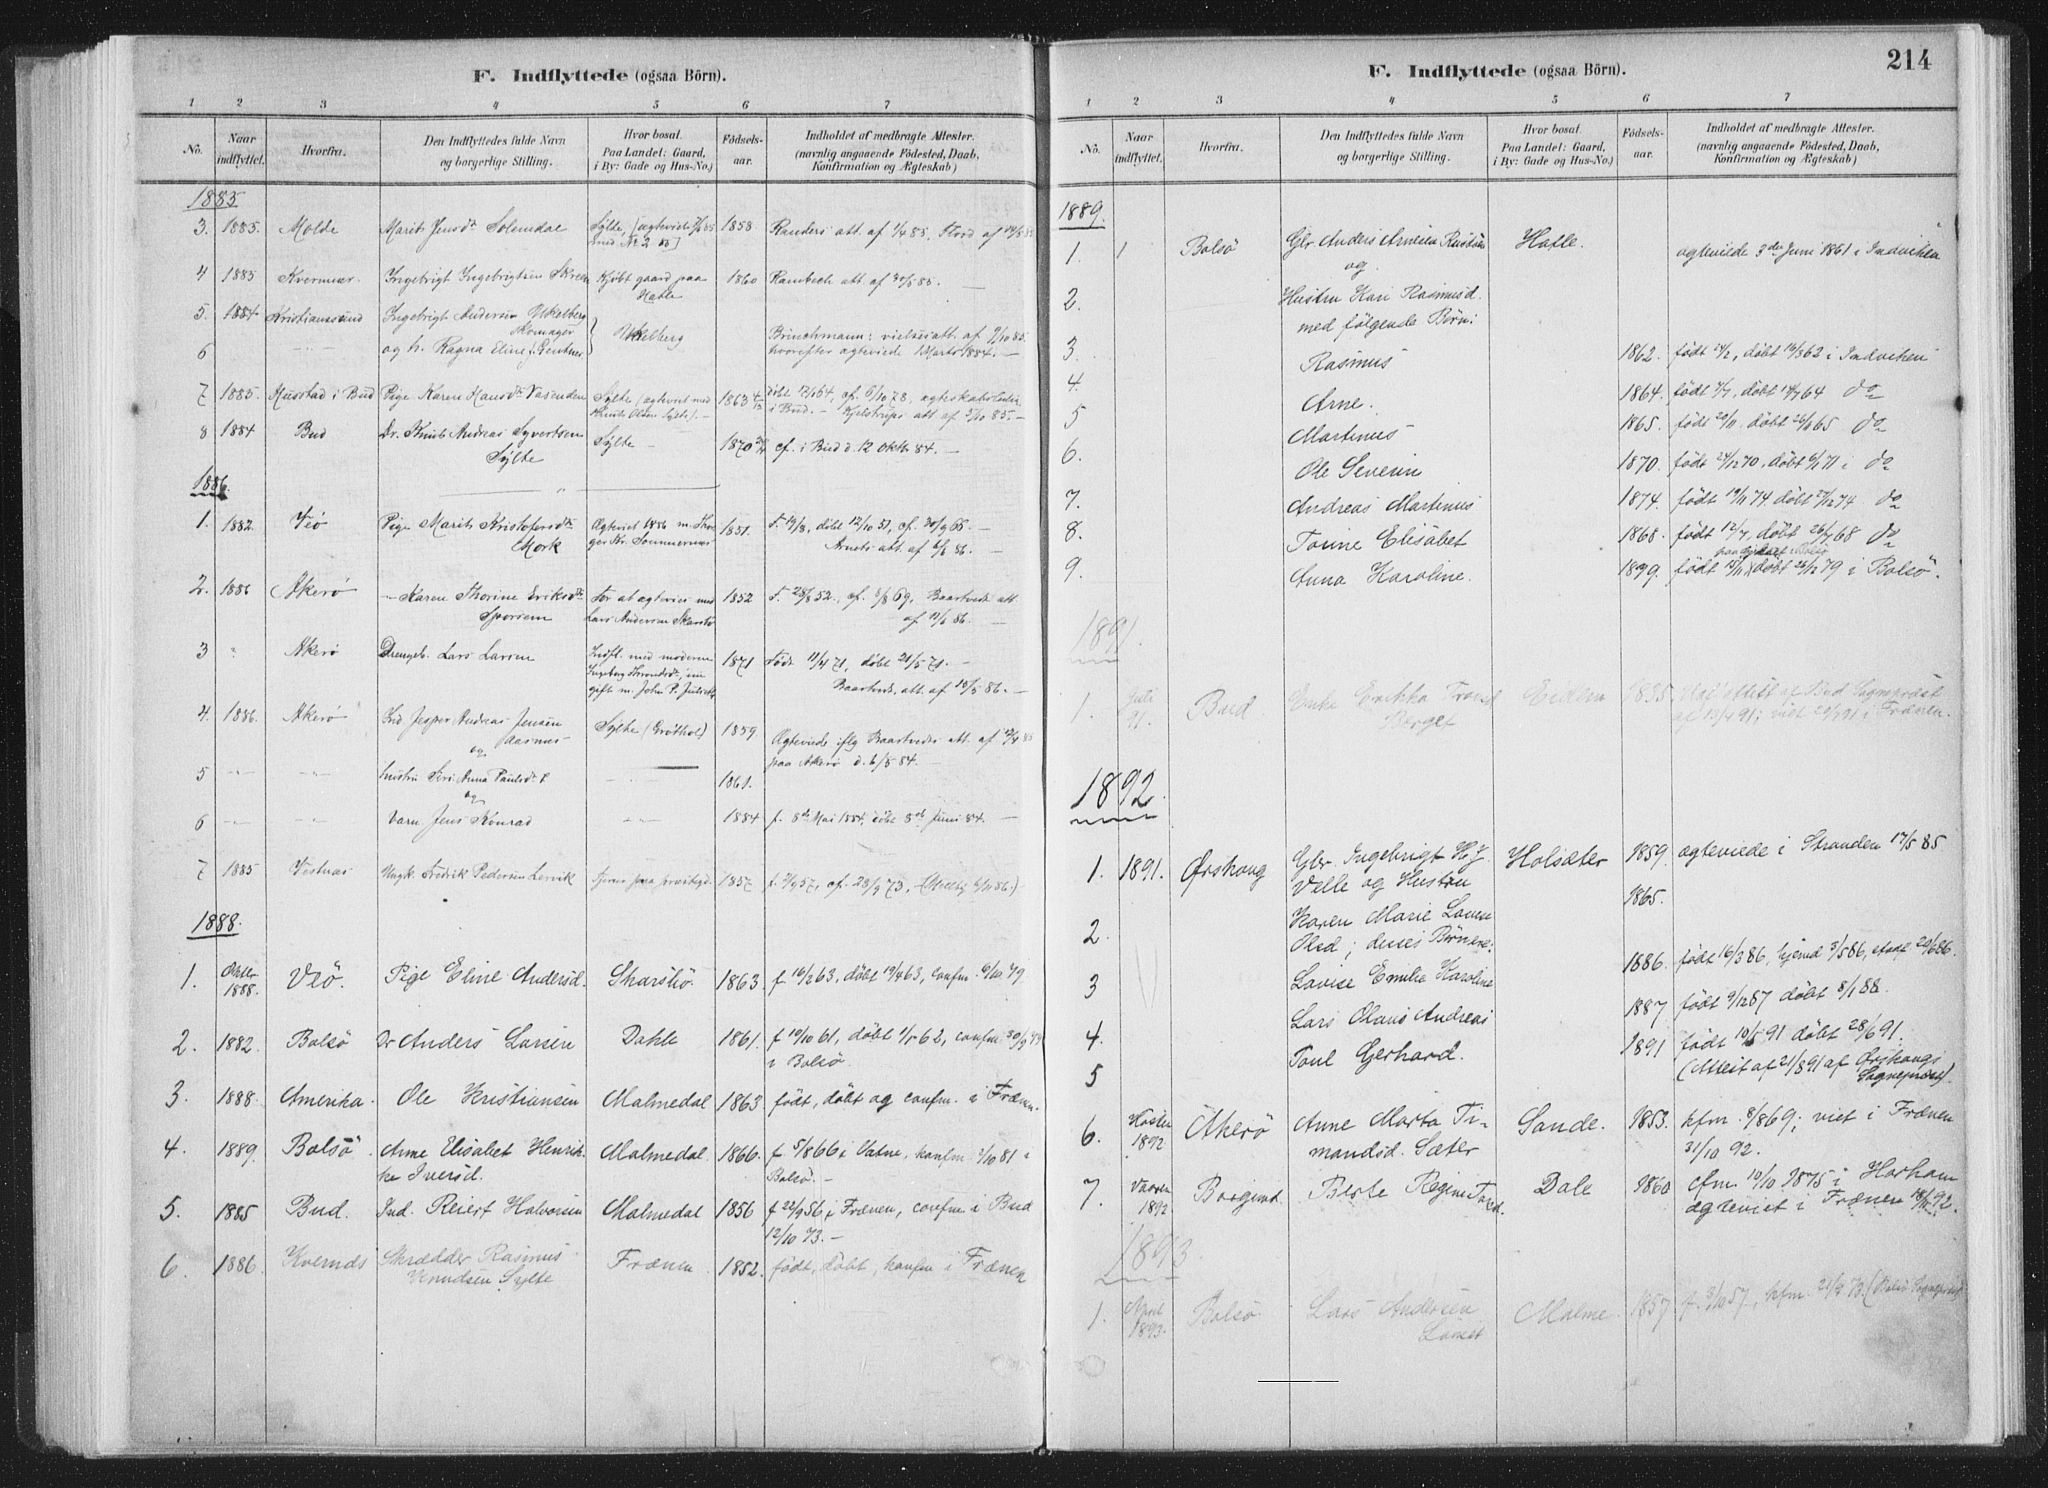 F. Indflyttede (ogsaa Börn).
1 2 3 4 5 6 7
No. Naar indflyttet. Hvorfra. Den Indflyttedes fulde Navn og borgerlige Stilling. Hvor bosat. Paa Landet: Gaard, i By: Gade og Hus-No.) Födsels-aar. Indholdet af medbragte Attester. (navnlig angaaende Födested, Daab, Konfirmation og Ægteskab)
1885
3. 1885. Molde Marit Jensdr Solemdal Sylte, 1858 Randers att. af 1/4 85,
4 1885 Ingebrigt Ingebrigtsen Kjöbt gaard paa 1860 Rambech att. af 30/5 85. —
5. 1884 Kristianssund Ingebrigt Andersen
Skomager
6 og h. Ragna Eline Brinchmann: vielsesatt. af 9/10 85.
hvorefter ægteviede Marts 1884. —
7 1885. Husstad i Bud Pige Karen Hansdr Vasenden Sylte (ægteviet med 1863
Knut Olsen Sylte). — i Bud. — Kjelstrups att. af
8 1884 Bud Dr. Knut Andreas Syvertsen Sylte — 1870 cf. i Bud d. 12 Oktb. 84. —
Sylte
1886.
1. 1882. Veö Pige Marit Kristofersdr Ægteviet 1886 m. 1851. f. 19/8, döbt 12/10 51, cf. 30/9 66. —
Mork att. af 6/6 86. —
2. 1886 Akerö — Karen Thorine Eriksdr For at ægtevies med 1852 f. 28/8 52, cf. 8/8 69, Baartveds att.
Lars Andersen Skarstö af 11/6 86. —
3 " Akerö Drengeb. Lars Larsen Indfl. med moderen 1871 Födt 11/4 71, döbt 21/5 71. —
gift m. John P. Baartveds, att. af 10/5 86. —
4. 1886. Akerö Ind. Jesper Andreas Jensen Sylte 1859
Aasnes Ægteviede iflg Baartveds att. af
og paa Akerö d. 6/5 84. —
5 hustru Anna Paulsdr 1861.
og
6 barn Jens Konrad 1884 f. 8de Mai 1884, döbt 8de Juni 84. —
7 1885 Vestnæs Ungk. Fredrik Pedersen Lervik 1857 f. 7/9 57, cf. 28/9 73,
1888.
1. Oktbr 1888. Veö. Pige Eline Andersd. Skarstö. 1863 f 16/2 63, döbt 19/4 63, confm. 6/10 79
2. 1882. Bolsö Dr Anders Larsen Dahle 1861. f 10/10 61, döbt 1/1 62, confm
i Bolsö
3. 1888. Amerika. Ole Kristiansen Malmedal 1863 födt, döbt og confm. i Frænen.
4. 1889. Bolsö Anne Elisabet Henrik- Malmedal. 1866. f 5/8 66 i Vatne, konfm. 2/10 81 i
ke Iversd. Bolsö. —
5. 1885 Bud. Ind. Reiert Halvorsen Malmedal 1856 f 22/9 56, i Frænen, confm. i Bud
12/10 73. —
6. 1886. Kvernæs Skrædder Rasmus Frænen 1852. födt, döbt, konfm i Frænen
Knudsen Sylte
214
F. Indflyttede (ogsaa Börn).
1 2 3 4 5 6 7
No. Naar indflyttet. Hvorfra. Den Indflyttedes fulde Navn og borgerlige Stilling. Hvor bosat. Paa Landet: Gaard, i By: Gade og Hus-No.) Födsels-aar. Indholdet af medbragte Attester. (navnlig angaaende Födested, Daab, Konfirmation og Ægteskab)
1889.
1. Bolsö Gbr. Anders Hatle. ægteviede 3die Juni 1861 i Indviken
og
2. Hustru Kari Rasmusd.
med fölgende Börn:
3. Rasmus 1862. födt 24/2, döbt 16/3 62 i Indviken
4. Arne. 1864. födt 7/7, döbt 17/7 64 do
5 Martinus 1865. födt 20/11. döbt 26/11 65 do
6. Ole Severin 1870. födt 24/12 70, döbt 6/1 71 i do
7. Andreas Martinus 1874. födt 19/11 74 döbt 27/12 74 do
8. Torine Elisabet 1868. födt 12/7, döbt 26/7 68 do
9. Anna Karoline. 1879. födt 15/11, döbt 26/12 79 i Bolsö.
1891.
1. Juli 91. Bud Erikka 1835. attest af Bud Sognepræst
Berget viet i Frænen.
1892.
1. 1891. Ørskoug Gbr. Ingebrigt H. J. Holsæter 1859. ægteviede i Stranden 17/5 85
Velle og Hustru 1865.
2. Karen Marie
Olsd; deres Börn ere:
3 Lovise Emilie Karoline 1886. födt 16/3 86, hjemd 3/5 86, stadf 20/6 86.
4. Lars Olaus Andreas 1887 födt 9/12 87 döbt 8/1 88.
5 Toul Gerhard. 1891 födt 10/5 91 döbt 28/6 91.
(Attest af 21/8 91 af Ørskougs
Sognepræst).
6. Hösten 1892 Akerö Anne Marta Ti- Sande. 1853. kfm. 8/8 69; viet i Frænen
mandsd. Sæter 31/10 92.
7. Vaaren 1892 Borgund Berte Regine Dale 1860 cfm. 10/10 1875 i Harham
ægteviet i Frænen
1893
1. April 1893. Bolsö Lars Andersen Malme 1857. f. 3/10 57, kfm.